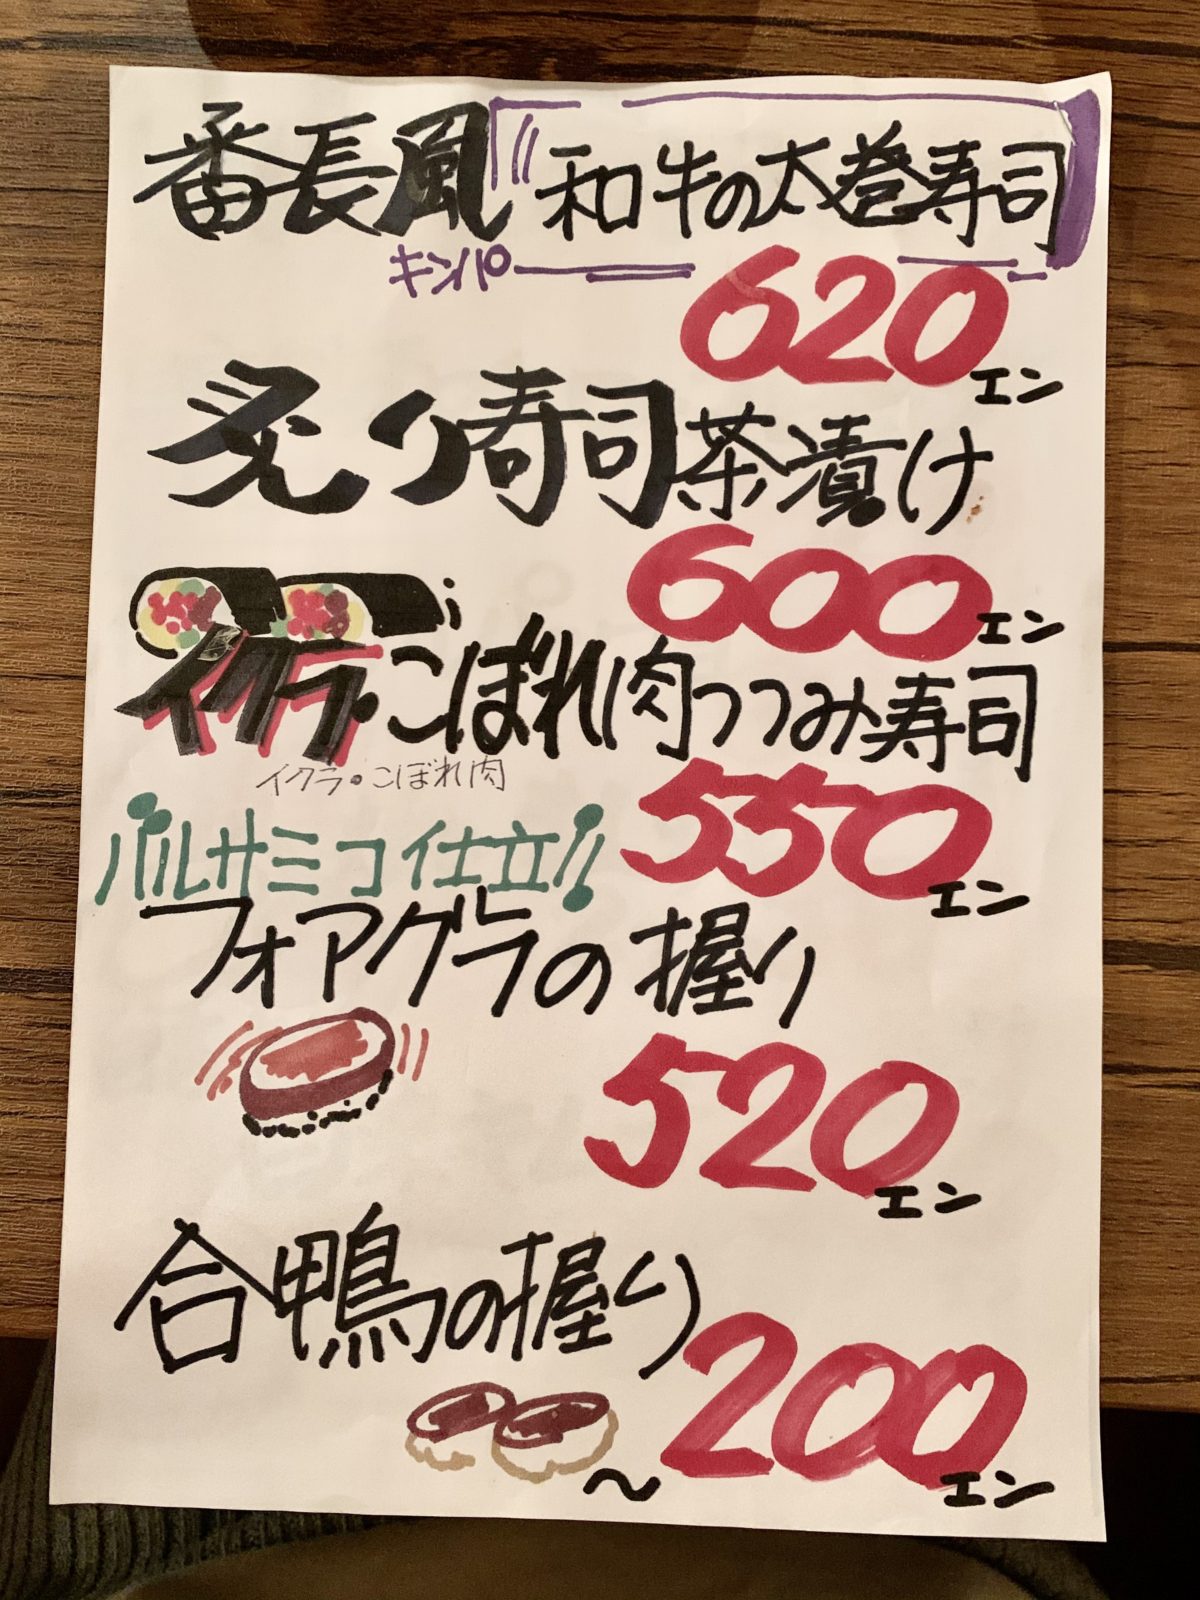 番長風 和牛の太巻寿司
キンパ
620エン
炙り寿司茶漬け
600エン
イクラ・こぼれ肉つつみ寿司
イクラ・こぼれ肉
550エン
バルサミコ仕立!!
フォアグラの握り
520エン
合鴨の握り
～200エン